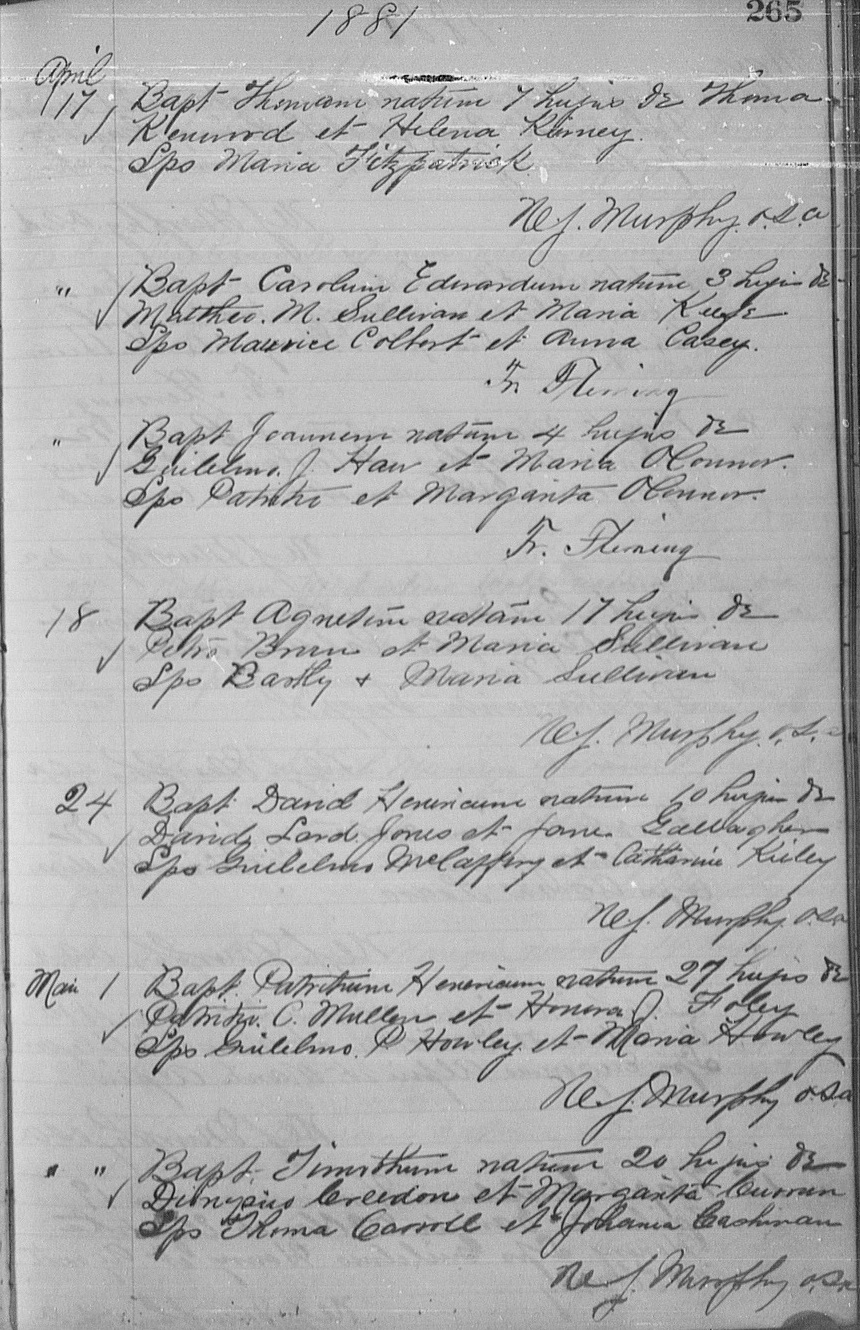 265
1881
April
17 Bapt Thomam natum 7 hujus de Thoma
Kenwood et Helena Kenney.
Sps Maria Fitzpatrick.
N.J. Murphy. o.s.a.
" Bapt Carolum Edwardum natum 3 hujus de
Mattheo. M. Sullivan et Maria
Sps Maurice Colbert et Anna Casey.
Fr. Fleming
" Bapt Joannem natum 4 hujus de
Guilelmo. J. Haw et Maria OConnor.
Sps Patritio et Margarita OConnor.
Fr. Fleming
18 Bapt Agnetem natam 17 hujus de
Petro et Maria Sullivan
Sps Bartly + Maria Sullivan
N.J. Murphy. o.s.a
24 Bapt David Henricum natum 10 hujus de
David Lord Jones et Jane Gallagher
Sps Guilelmo McCaffery et Catharine Kiley
N.J. Murphy o.s.a
Maii 1 Bapt Patritium Henricum natum 27 hujus de
Patritio. C. Mullen et Honora J. Foley
Sps Guilelmo. P Howley et Maria Howley
N.J. Murphy o.s.a
" " Bapt. Timotheum natum 20 hujus de
Dionysio Creedon et Margarita Curran
Sps Thoma Carroll et Johanna Cashman
N.J. Murphy o.s.a